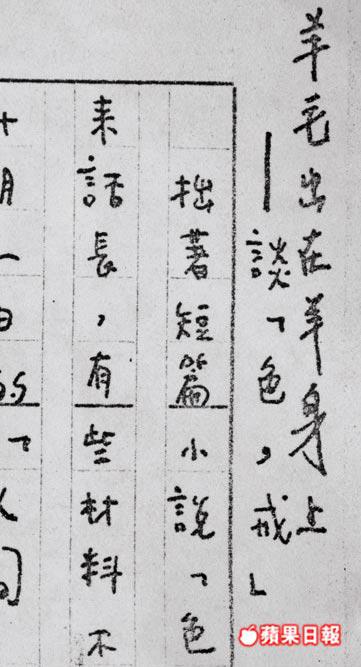 羊毛出在羊身上
——談「色，戒」
拙著短篇小說「色
來話長，有些材料不
十月一日的「人間
蘋果日報